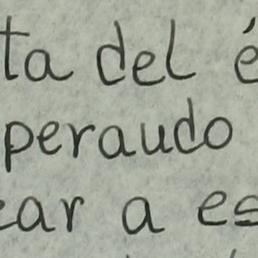 ta del é
peraudo
ar a es